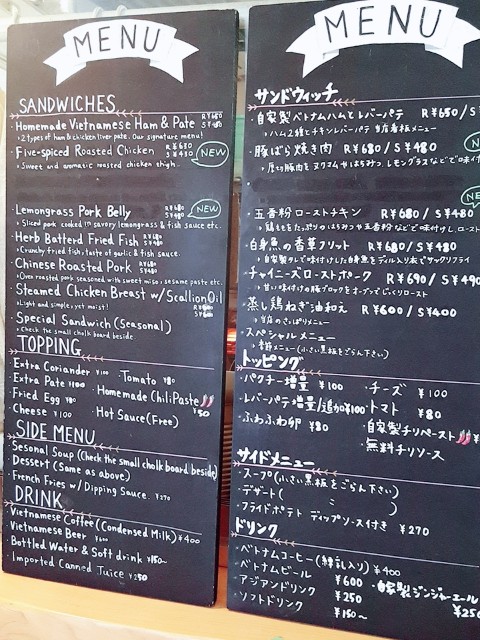 MENU
SANDWICHES
・Homemade Vietnamese Ham & Pate R ¥650 S ¥450
→2 types of ham & chicken liver pate. Our signature menu!
・Five-spiced Roasted Chicken R ¥680 S ¥480 NEW
→Sweet and aromatic roasted chicken thigh.
・Lemongrass Pork Belly R ¥680 S ¥480 NEW
→Sliced pork cooked in savory lemongrass & fish sauce etc.
・Herb Batterd Fried Fish R ¥680 S ¥480
→Crunchy fried fish, taste of garlic & fish sauce.
・Chinese Roasted Pork R ¥690 S ¥490
→Oven roasted pork seasoned with sweet miso, sesame paste etc.
・Steamed Chicken Breast w/ Scallion Oil
→Light and simple, yet moist! R ¥600 S ¥400
・Special Sandwich (Seasonal)
→Check the small chalk board beside.
TOPPING
・Extra Coriander ¥100 ・Tomato ¥80
・Extra Pate ¥100 ・Homemade Chili Paste ¥50
・Fried Egg ¥80
・Cheese ¥100 ・Hot Sauce (Free)
SIDE MENU
・Sesonal Soup (Check the small chalk board beside)
・Dessert (Same as above)
・French Fries w/ Dipping Sauce. ¥270
DRINK
・Vietnamese Coffee (Condensed Milk) ¥400
・Vietnamese Beer ¥600
・Bottled Water & Soft drink ¥150~
・Imported Canned Juice ¥250
MENU
サンドウィッチ
・自家製ベトナムハムとレバーパテ R ¥650/S
→ハム2種とチキンレバーパテ 当店看板メニュー
・豚ばら焼き肉 R ¥680/S ¥480
→厚切豚肉を ヌクマムやはちみつ、レモングラスなどで味付け
・五香粉ローストチキン R ¥680/S ¥480
→鶏ももをたっぷりのはちみつや五香粉などで味付けし、ロースト
・白身魚の香草フリット R ¥680/S ¥480
→自家製タレで味付けした白身魚をディル入り衣でサックリフライ
・チャイニーズローストポーク R ¥690/S ¥490
→甘い味付けの豚ブロックをオーブンでじっくりロースト
・蒸し鶏ねぎ油和え R ¥600/S ¥400
→当店のさっぱりメニュー
・スペシャルメニュー
→季節メニュー(小さい黒板をごらん下さい)
トッピング
・パクチー増量 ¥100 ・チーズ ¥100
・レバーパテ増量/追加 ¥100 ・トマト ¥80
・ふわふわ卵 ¥80 ・自家製チリペースト ¥
・無料チリソース
サイドメニュー
・スープ(小さい黒板をごらん下さい)
・デザート( 〃 )
・フライドポテト ディップソース付き ¥270
ドリンク
・ベトナムコーヒー(練乳入り) ¥400
・ベトナムビール ¥600 ・自家製ジンジャーエール
・アジアンドリンク ¥250
・ソフトドリンク ¥150~